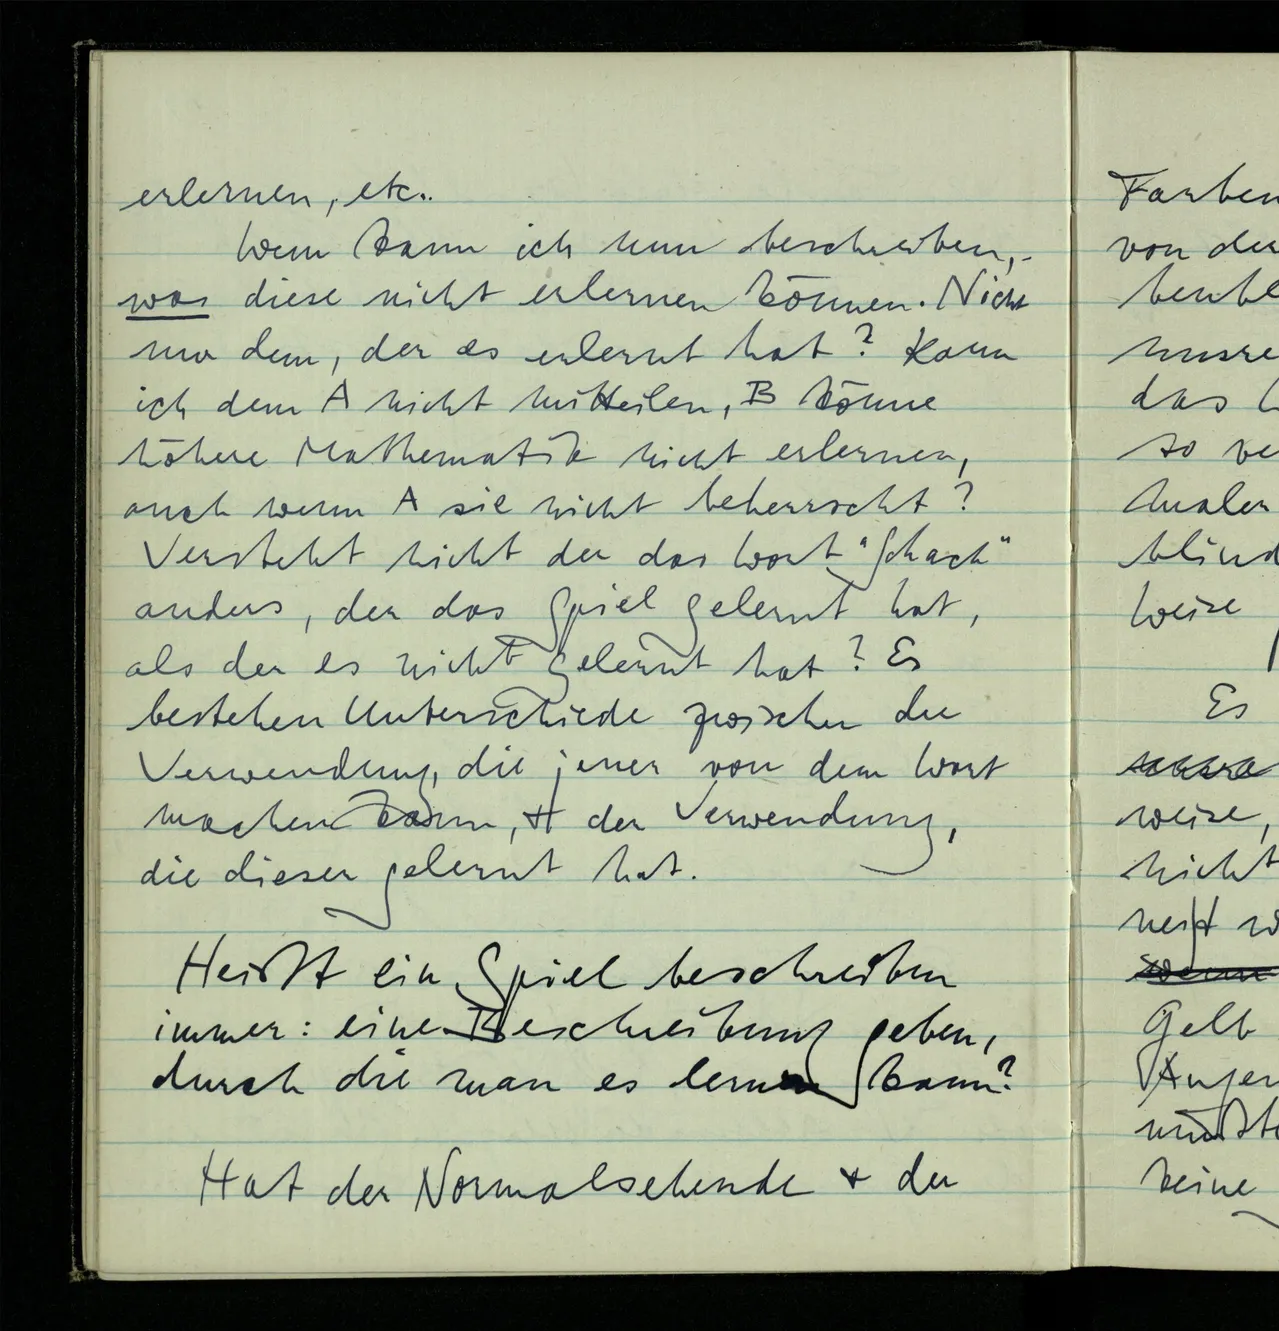 erlernen, etc..
Wem kann ich nun beschreiben,
was diese nicht erlernen können. Nicht
nur dem, der es erlernt hat? Kann
ich dem A nicht mitteilen, B könne
höhere Mathematik nicht erlernen,
auch wenn A sie nicht beherrscht?
Versteht nicht der das Wort "Schach"
anders, der das Spiel gelernt hat,
als der es nicht gelernt hat? Es
bestehen Unterschiede zwischen der
Verwendung, die jener von dem Wort
machen kann, + der Verwendung,
die dieser gelernt hat.
Heißt ein Spiel beschreiben
immer: eine Beschreibung geben,
durch die man es lernen kann?
Hat der Normalsehende + der
Farben
von der
unsre
das
so ve
blind
weise
Es
weise,
nicht
Gelb
müßte
keine